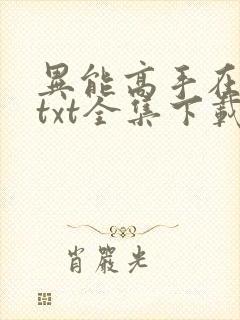 異能高手在
txt全集下載
肖嚴光